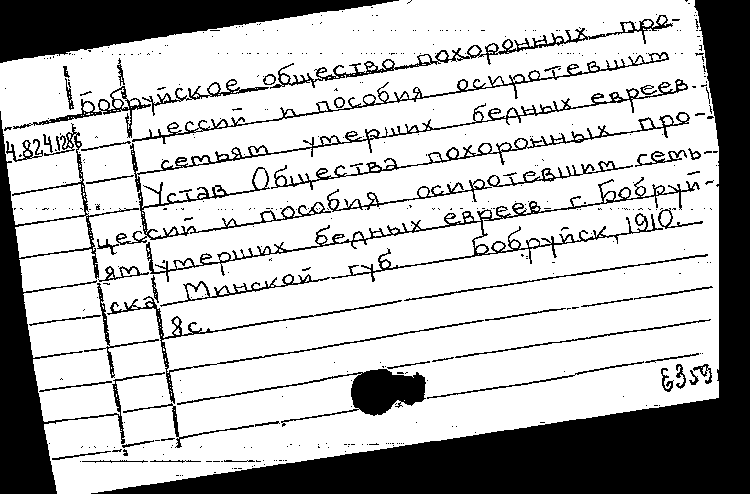 Бобруйское общество похоронных про-
цессий и пособия осиротевшим
семьям умерших бедных евреев.
Устав Общества похоронных про-
цессий и пособия осиротевшим семь-
ям умерших бедных евреев г. Бобруй-
ска Минской губ. Бобруйск, 1910.
8 с.
Е359